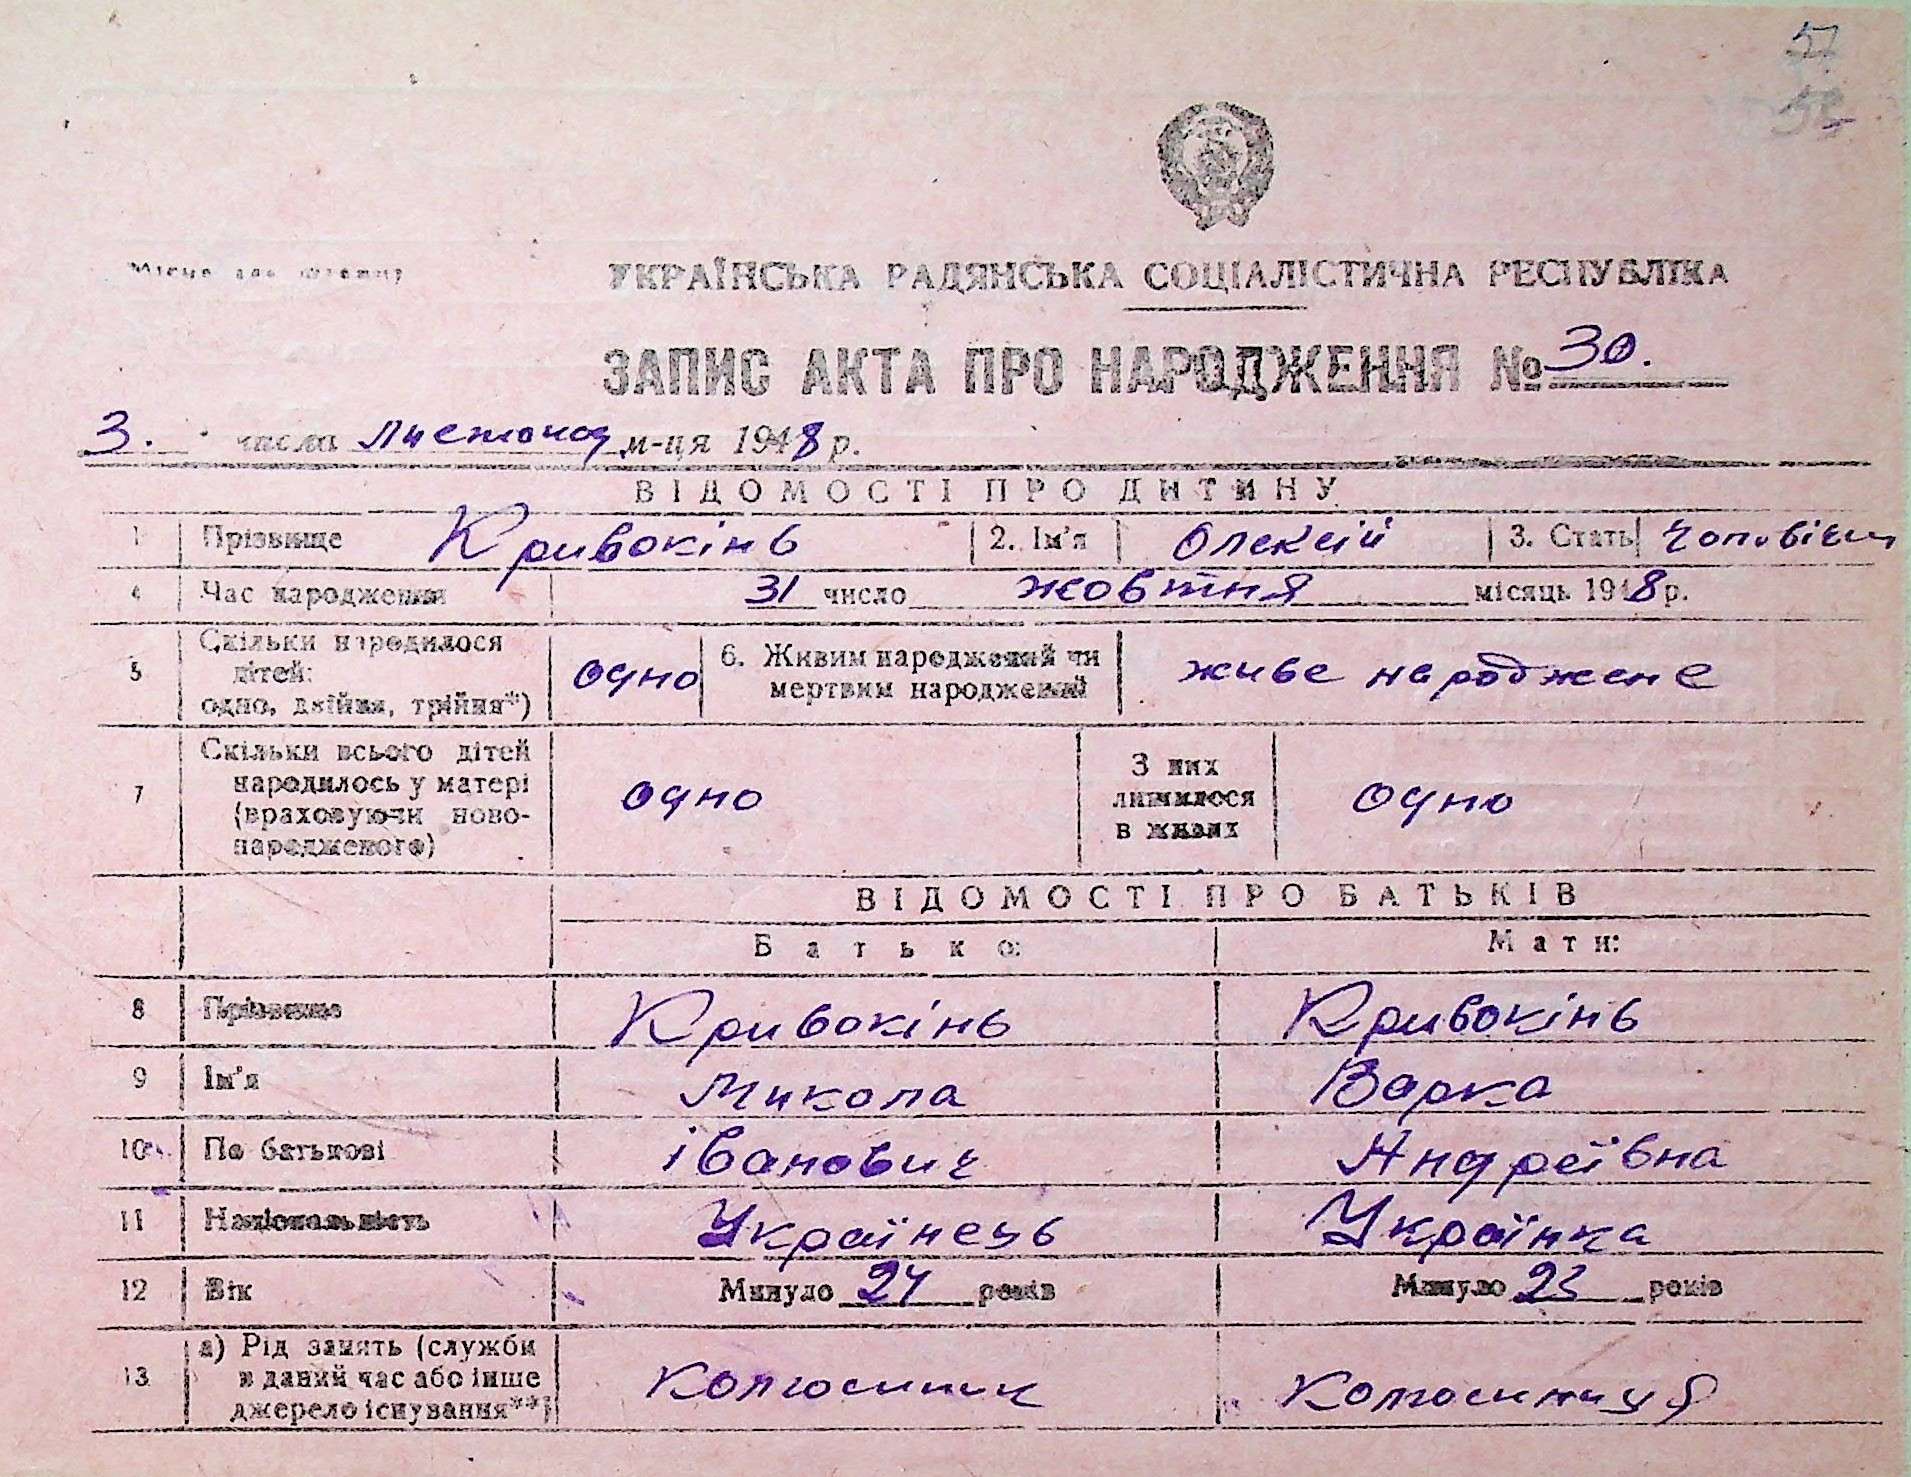 57
Місце для штампу
УКРАЇНСЬКА РАДЯНСЬКА СОЦІАЛІСТИЧНА РЕСПУБЛІКА
ЗАПИС АКТА ПРО НАРОДЖЕННЯ № 30.
3. числа листопад м-ця 1948 р.
ВІДОМОСТІ ПРО ДИТИНУ
1 Прізвище Кривокінь 2. Ім'я Олексій 3. Стать
4 Час народження 31 число жовтня місяць 1948 р.
Скільки народилося
5 дітей: одно 6. Живим народжений чи живе народжене
одно, двійня, трійня*) мертвим народжений
Скільки всього дітей З них
7 народилось у матері одно лишилося одно
(враховуючи ново- в живих
народженого)
ВІДОМОСТІ ПРО БАТЬКІВ
Батько: Мати:
8 Прізвище Кривокінь Кривокінь
9 Ім'я Микола Варка
10 По батькові Іванович Андреївна
11 Національність Українець Українка
12 Вік Минуло 24 років Минуло 23 років
а) Рід занять (служби
13 в даний час або інше Колгоспник Колгоспниця
джерело існування**)